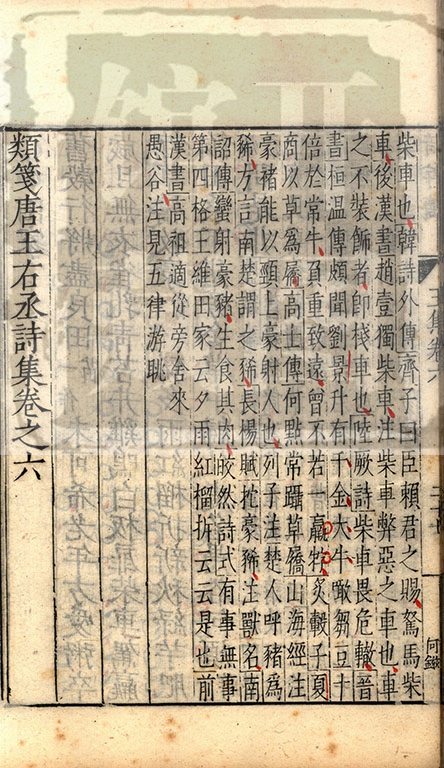 柴車也韓詩外傳齊子曰臣賴君之賜駑馬柴
車後漢書趙壹獨柴車注柴車弊惡之車也車
之不裝飾者即棧車也陸厥詩柴車畏危轍晉
書桓溫傳頗聞劉景升有千金大牛噉芻豆十
倍於常牛負重致遠曾不若一羸牸炙轂子夏
商以草為屩高士傳何點常躡草屩山海經注
豪褚能以頸上豪射人也列子注楚人呼豬為
豨方言南楚謂之豨長楊賦扡豪豨注獸名南
詔傳蠻射豪豬生食其肉皎然詩式有事無事
第四格王維田家云夕雨紅榴折云云是也前
漢書高祖適從旁舍來
愚谷注見五律游眺
類箋唐王右丞詩集卷之六